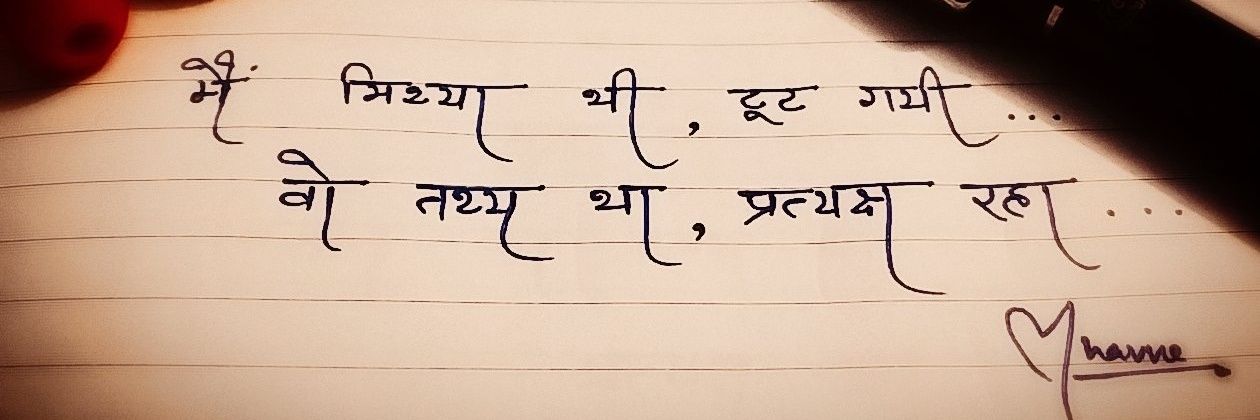 मैं मिथ्या थी, टूट गयी...
वो तथ्य था, प्रत्यक्ष रहा....